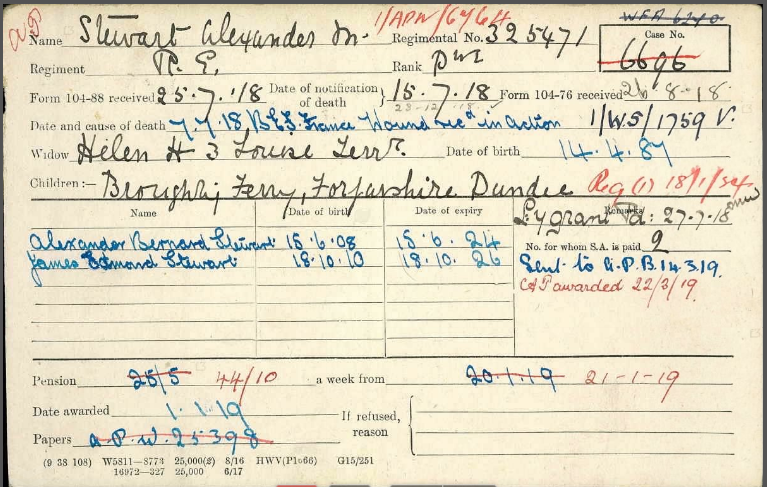 1/APW/6464 WFA 6240
Name Stewart Alexander M. Regimental No. 325471 Case No.
6696
Regiment R. E. Rank Pnr
Form 104-88 received 25.7.'18 Date of notification of death } 15.7.18 Form 104-76 received 26.8.18.
23-12-18
Date and cause of death 7.7.18 B.E.F. France Wound rec'd in action 1/W.S/1759 V.
Widow Helen H 3 Louise Terr. Date of birth 14.4.87
Children:— Broughty Ferry, Forfarshire Dundee Reg (1) 18/1/54
Name Date of birth Date of expiry Remarks
£5 grant Pd: 27-7-18
Alexander Bernard Stewart 15.6.08 15.6.24 No. for whom S.A. is paid 2
James Edmond Stewart 18.10.10 18.10.26 Sent to A.P.B. 14.3.19.
CAP awarded 22/3/19.
Pension 25/5 44/10 a week from 20.1.19 21-1-19
Date awarded 1.1.19 If refused, reason {
Papers a.P.W. 25398
(9 38 108) W5811—8773 25,000(2) 8/16 HWV(P1066) G15/251
16972—327 25,000 6/17